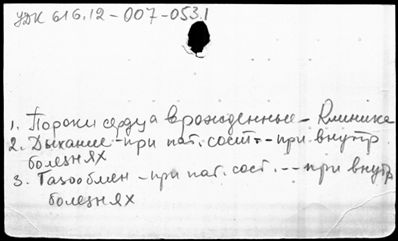 УДК 616.12-007-053.1
1. Пороки сердца врожденные - Клиника
2. Дыхание - при пат. сост. - при внутр.
болезнях
3. Газообмен - при пат. сост. -- при внутр.
болезнях